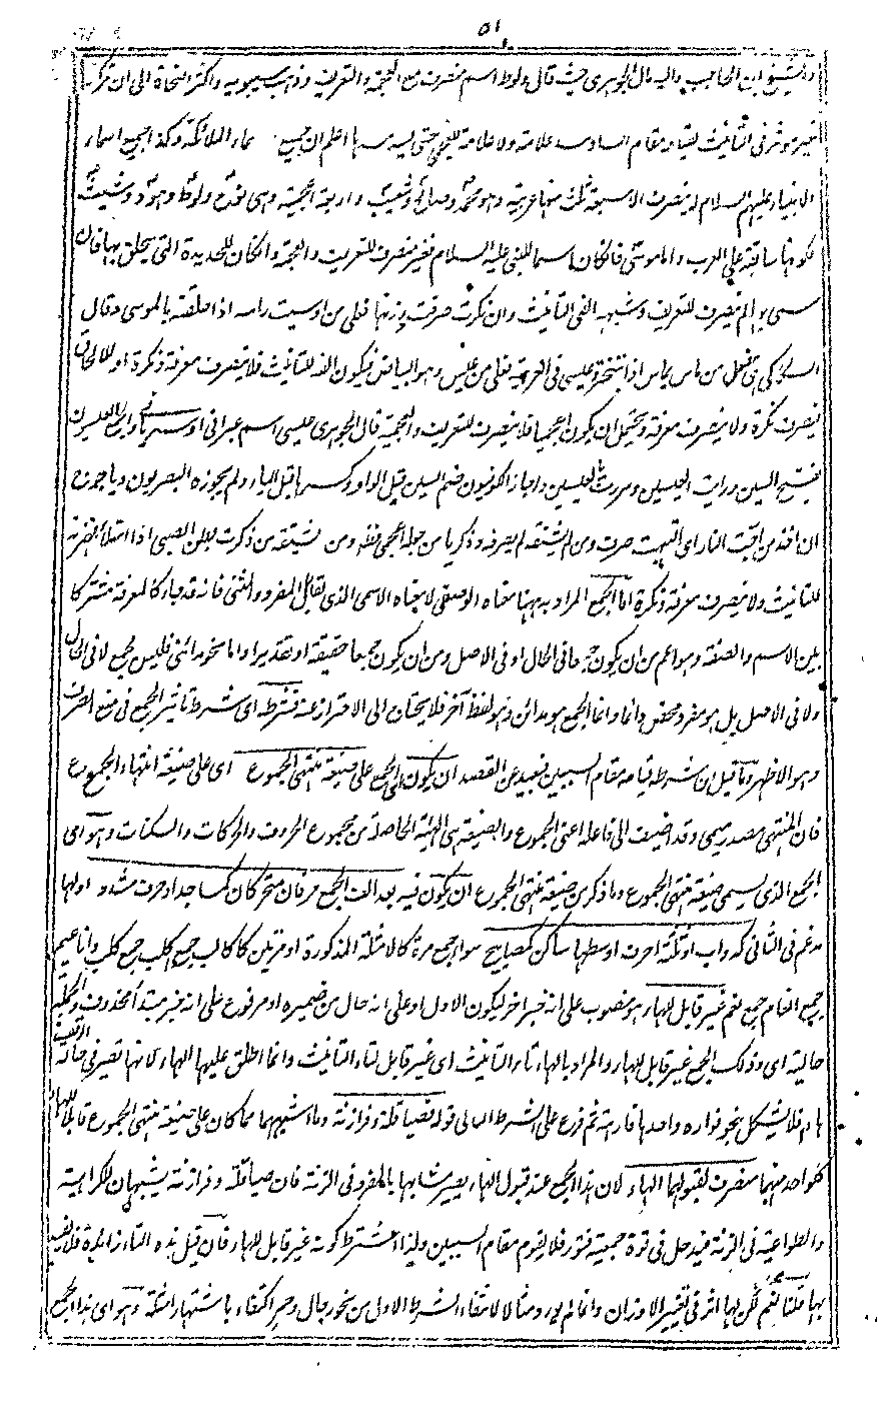 ٥١
والشيخ ابن الحاجب واليه مال الجوهرى حيث قال ولوط اسم منصرف مع العجمة والتعريف وذهب سيبويه واكثر النحاة الى ان
مؤثر فى التأنيث لقيامه مقام السادسه علامة ولا علامة للعجمى حتى يسد اعلم ان جميع اسماء الملائكة وكذا جميع اسماء
الانبياء عليهم السلام لا ينصرف الا سبعة ثلث منها عربية وهو محمد وصالح وشعيب واربعة اعجمية وهى نوح ولوط وهود وشيث
على العرب واما موسى فان كان اسما للنبى عليه السلام فغير منصرف للتعريف والعجمة وان كان للحديدة التى يحلق بها قال
سيبويه لم ينصرف للتعريف وشبهه الفى التأنيث وان نكرت صرفت وزنها فعلى من اوسيت راسه اذا حلقته بالموسى وقال
هى فعلى من ماس يماس اذا تبختر وعيسى فى العربية فعلى من عيس وهو البياض فيكون الفه للتأنيث فلا ينصرف معرفة ونكرة او للالحاق
فينصرف نكرة ولا ينصرف معرفة ويحتمل ان يكون اعجميا فلا ينصرف للتعريف والعجمة قال الجوهرى عيسى اسم عبرانى او سريانى والجمع العيسون
بفتح السين ورايت العيسين ومررت بالعيسين واجاز الكوفيون ضم السين قبل الواو وكسرها قبل الياء ولم يجوزه البصريون وياجوج
ان اخذ من اجت النار اى التهبت صرف ومن لم يشتقه لم يصرفه وزكريا من جعله اعجمى فقه ومن يشتقه من زكرت بطن الصبى اذا امتلأ
للتانيث ولا ينصرف معرفة ونكرة اما الجمع المراد به ههنا معناه الوصفى لا معناه الاسمى الذى تقابل المفرد والمثنى فانه قد جاء كالمعرفة مشتركا
بين الاسم والصفة وهو اعم من ان يكون جمعا فى الحال او فى الاصل ومن ان يكون جمعا حقيقة او تقديرا واما نحو مدائنى فليس بجمع لا فى الحال
ولا فى الاصل بل هو مفرد محض دائما وانما الجمع هو مدائن وهو لفظ آخر فلا يحتاج الى الاحتراز عنه فشرطه اى شرط تأثير الجمع فى منع الصرف
وهو الاظهر وما قيل ان شرط قيامه مقام السببين فبعيد عن القصد ان يكون اى الجمع على صيغة منتهى الجموع اى على صيغة انتهاء الجموع
فان المنتهى مصدر ميمى وقد اضيف الى فاعله اعنى الجموع والصيغة هى الهيئة الحاصلة من مجموع الحروف والحركات والسكنات وهو اى
الجمع الذى يسمى صيغة منتهى الجموع وما ذكر من صيغة منتهى الجموع ان يكون فيه بعد الف الجمع حرفان متحركان كمساجد او حرف مشدد اولها
مدغم فى الثانى كدواب او ثلثة احرف اوسطها ساكن كمصابيح سواء جمع مرة كالامثلة المذكورة او مرتين كاكالب جمع اكلب جمع كلب واناعيم
جمع انعام جمع نعم غير قابل للهاء هو منصوب على انه خبر آخر ليكون الاول او على انه حال من ضميره او مرفوع على انه خبر مبتدأ محذوف والجملة
حالية اى وذلك الجمع غير قابل للهاء والمراد بالهاء تاء التأنيث اى غير قابل لتاء التأنيث وانما اطلق عليها الهاء لانها تصير فى حالة الوقف
هاء فلا يشكل بنحو فواره واحدها فارهة ثم فرع على الشرط الثانى قوله فصياقلة وفرازنة وما اشبههما مما كان على صيغة منتهى الجموع قابلا للهاء
كل واحد منهما منصرف لقبولهما الهاء لان هذا الجمع عند قبول الهاء يصير مشابها بالمفرد فى الزنة فان صياقلة وفرازنة يشبهان الكراهية
والطواعية فى الزنة فيدخل فى قوة جمعية فتور فلا يقوم مقام السببين ولهذا اشترط كونه غير قابل للهاء فان قيل هذه التاء زائدة فلا تغيير
بها قلنا نعم لكن لها اثر فى تغيير الاوزان وانما لم يورد مثالا لانتفاء الشرط الاول من نحو رجال وحمر اكتفاء باشتهار امثلته وهو اى هذا الجمع